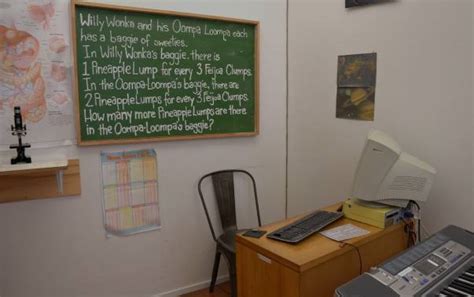 Willy Wonka and his Oompa Loompa each
has a baggie of sweeties.
In Willy Wonka's baggie, there is
1 Pineapple Lump for every 3 Feijoa Clumps.
In the Oompa-Loompa's baggie, there are
2 Pineapple Lumps for every 3 Feijoa Clumps.
How many more Pineapple Lumps are there
in the Oompa-Loompa's baggie?